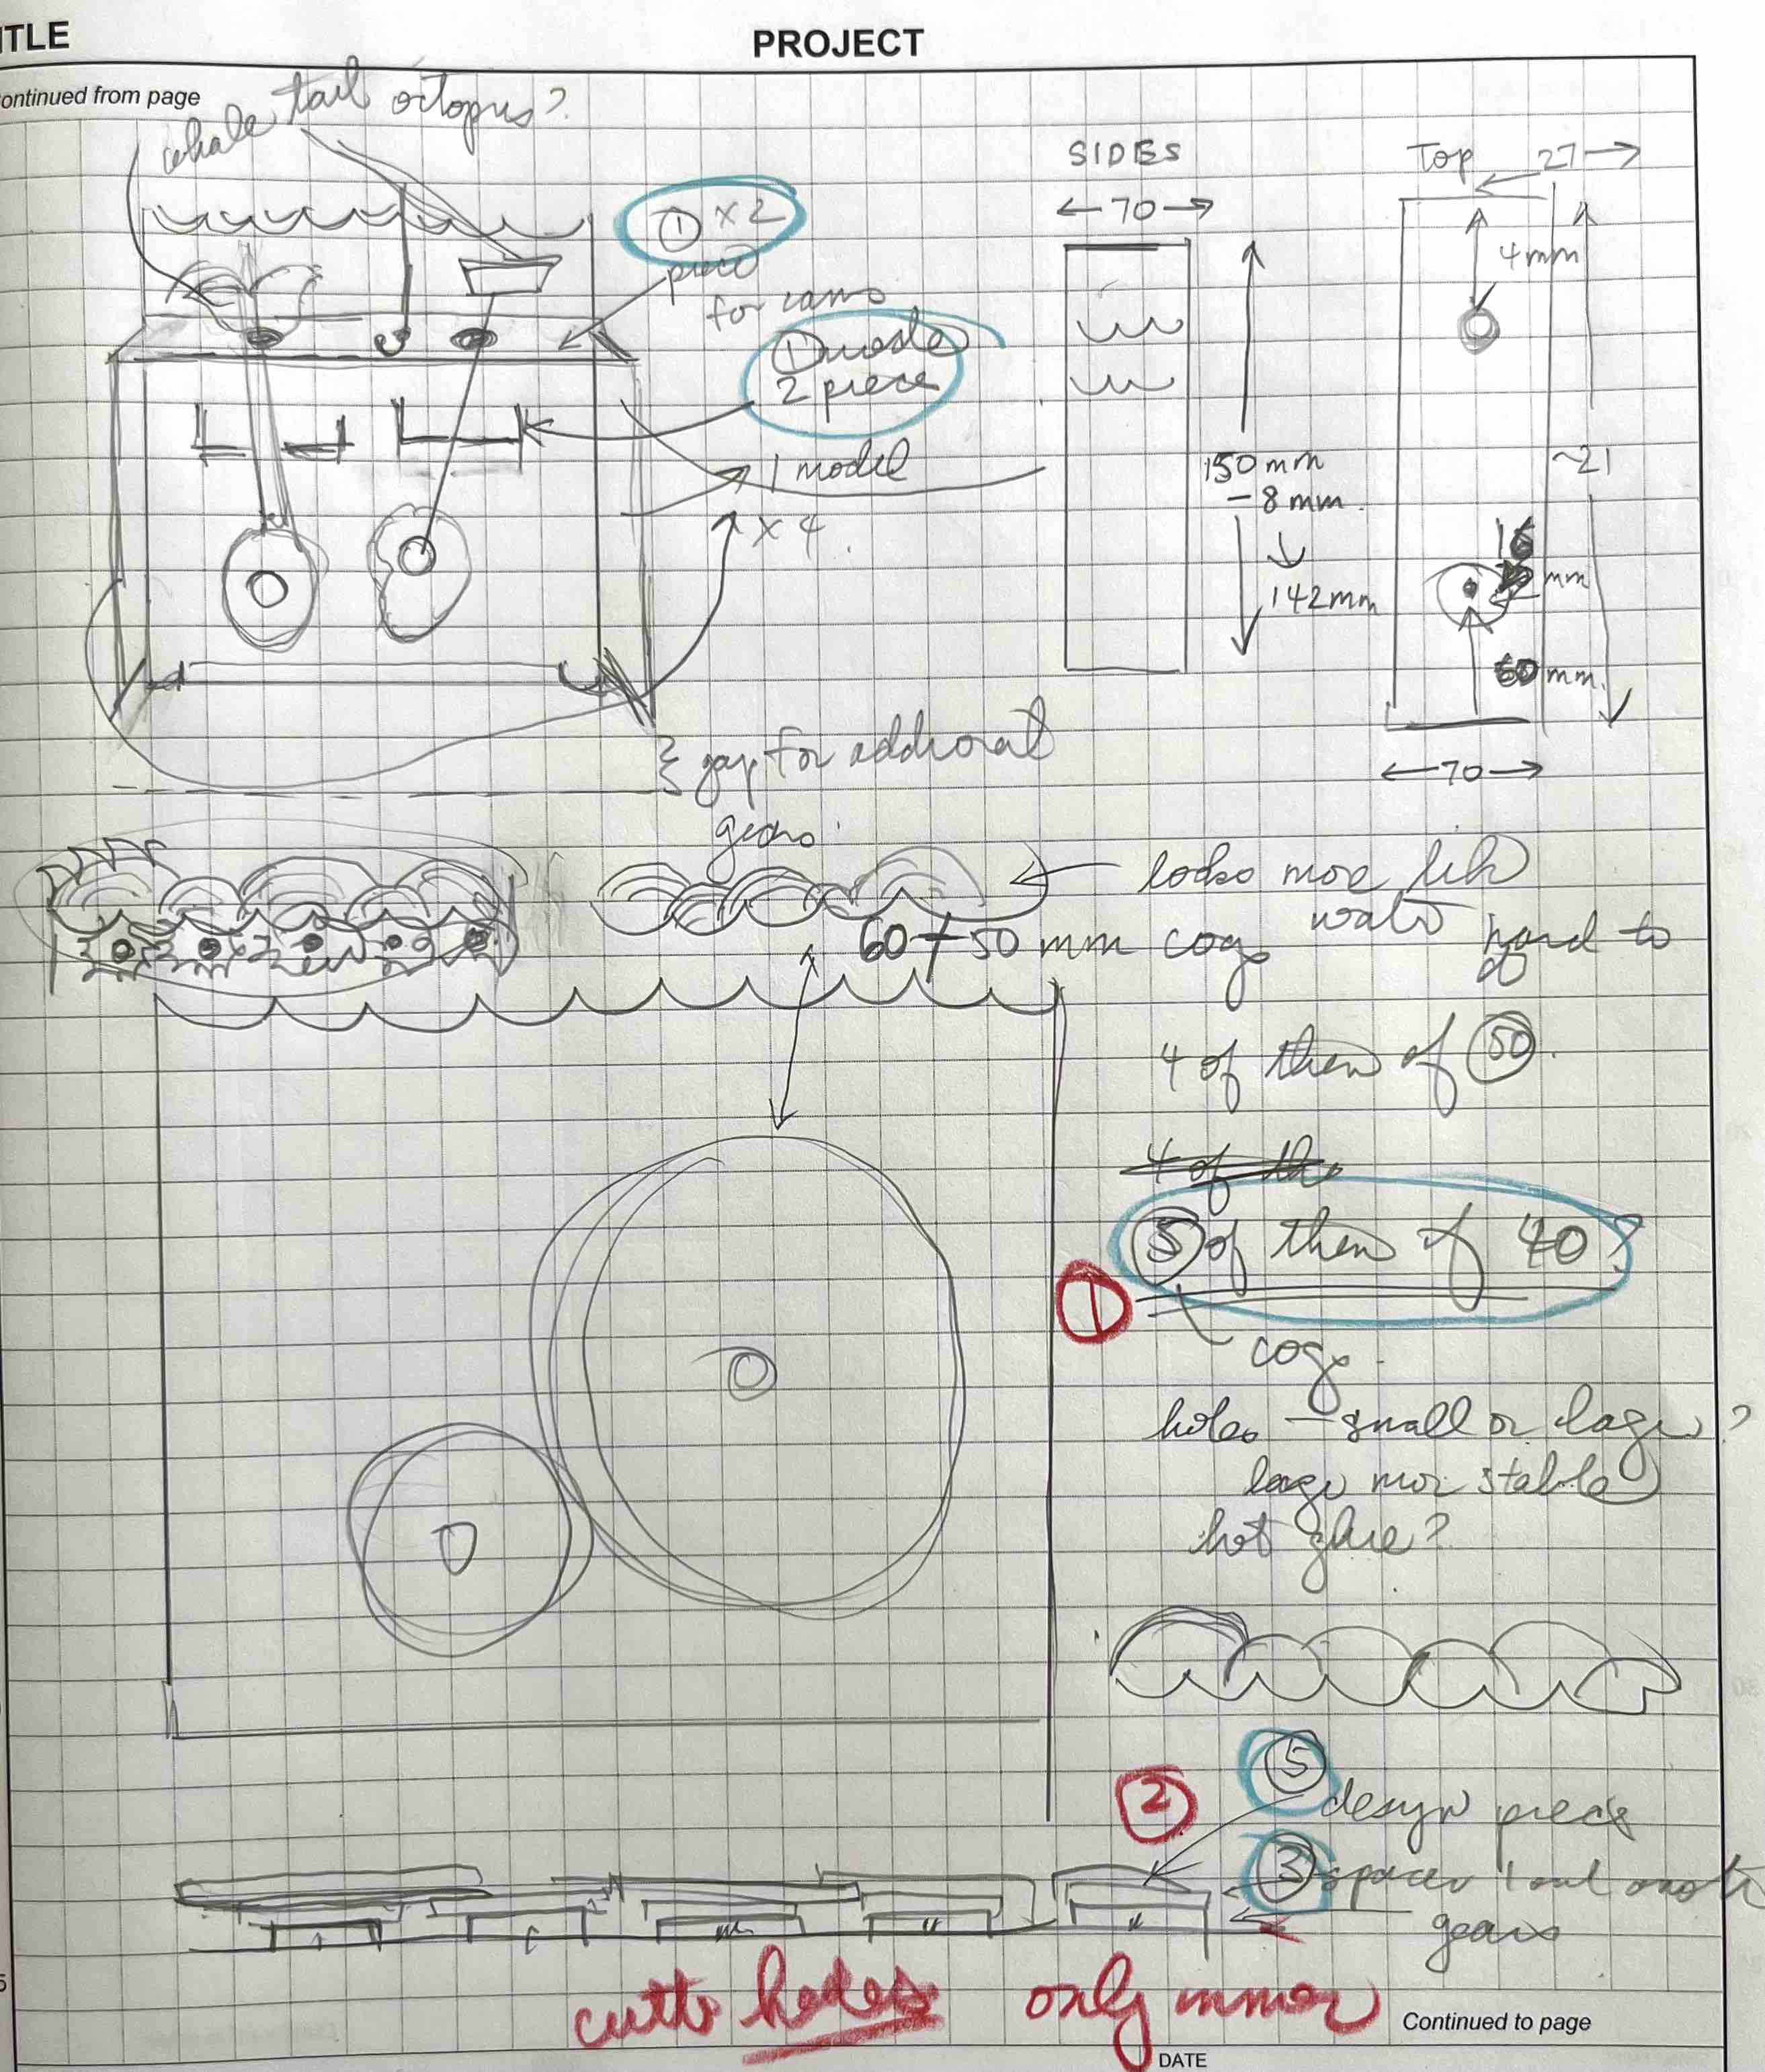 TITLE
PROJECT
ontinued from page
whale tail octopus?
① x 2
piece
for cams
① made
2 piece
1 model
x 4
SIDES
70
150mm
- 8mm
142mm
Top 27
4mm
~21
16
mm
60 mm.
70
gap for addional
gears
looks more lik
water hard to
60 + 50 mm cogs
4 of them of 50.
4 of the
5 of them of 40?
①
cogs
holes - small or large?
large more stable
hot glue?
②
⑤
design piece
③ spacer
gears
holes only
Continued to page
DATE